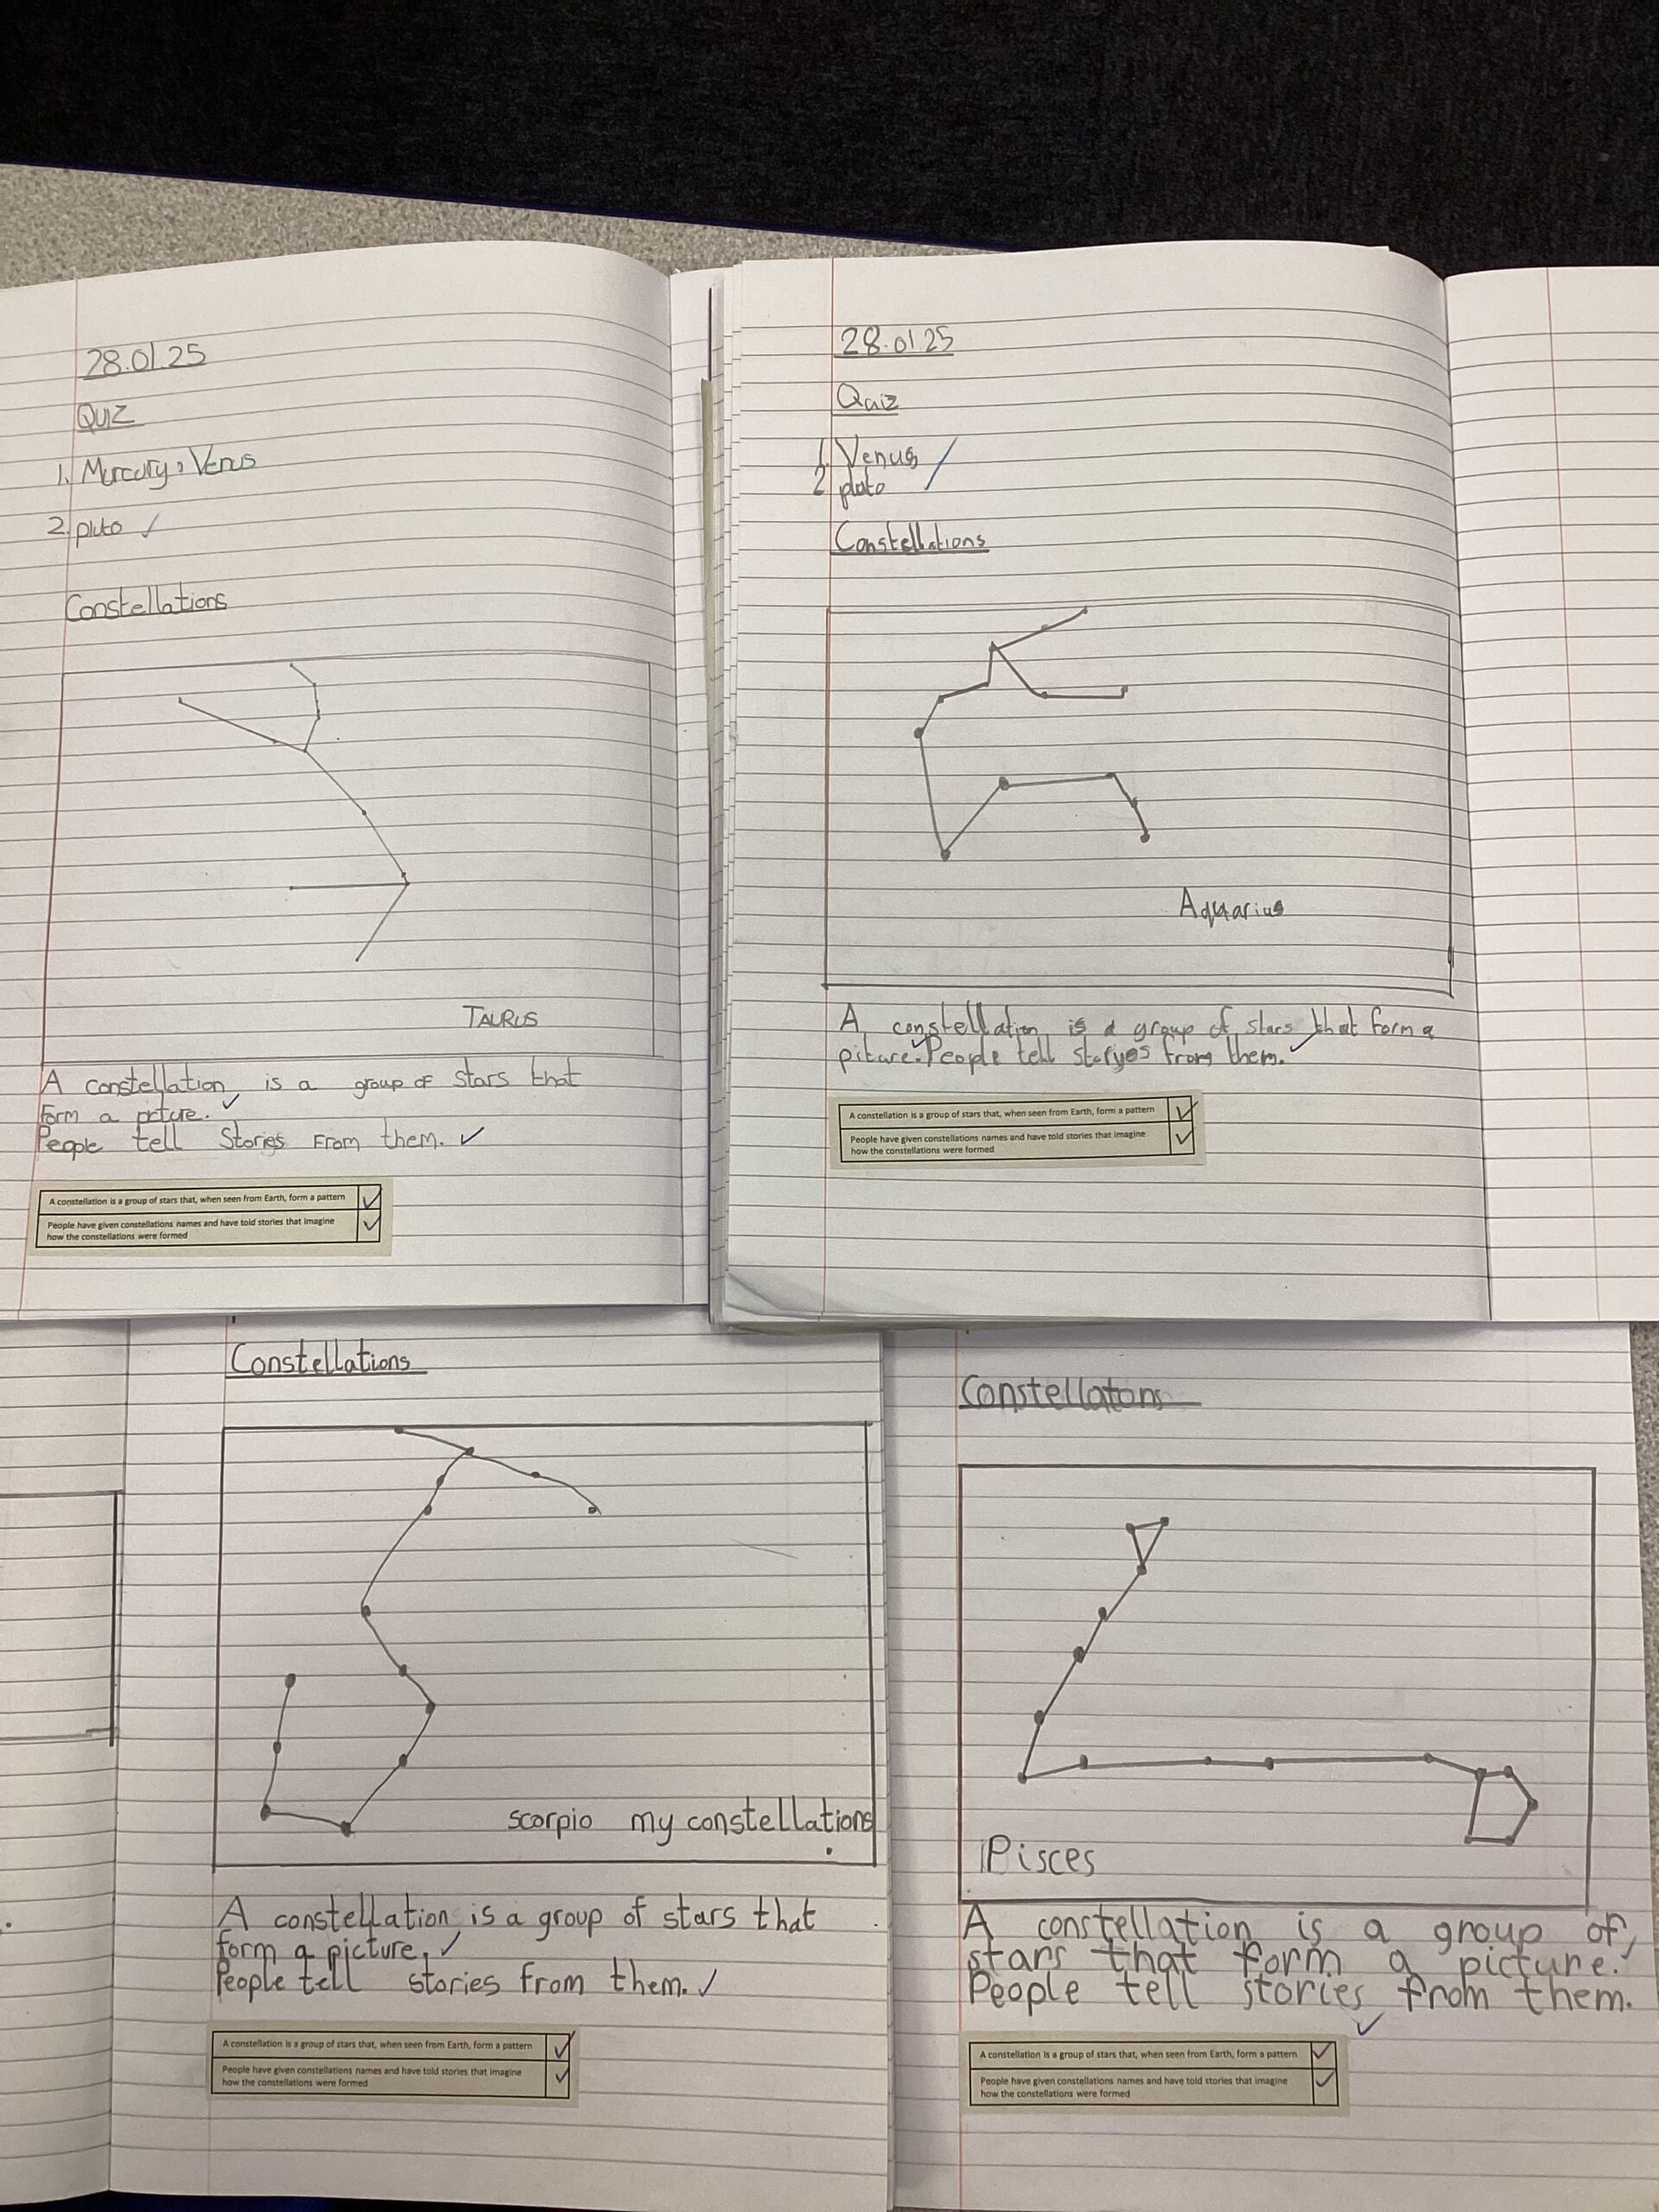 28.01.25
QUIZ
1. Mercury, Venus
2. pluto ✓
Constellations
TAURUS
A constellation is a group of stars that
form a picture. ✓
People tell Stories From them. ✓
A constellation is a group of stars that, when seen from Earth, form a pattern ✓
People have given constellations names and have told stories that imagine ✓
how the constellations were formed
28.01.25
Quiz
1. Venus
2 pluto
Constellations
Aquarius
A constellation is a group of stars that form a
piture. People tell storyes from them. ✓
A constellation is a group of stars that, when seen from Earth, form a pattern ✓
People have given constellations names and have told stories that imagine ✓
how the constellations were formed
Constellations
scorpio my constellations
A constellation is a group of stars that
form a picture. ✓
People tell stories from them. ✓
A constellation is a group of stars that, when seen from Earth, form a pattern ✓
People have given constellations names and have told stories that imagine ✓
how the constellations were formed
Constellatons
Pisces
A constellation is a group of
stars that form a picture. ✓
People tell stories from them.
✓
A constellation is a group of stars that, when seen from Earth, form a pattern ✓
People have given constellations names and have told stories that imagine ✓
how the constellations were formed